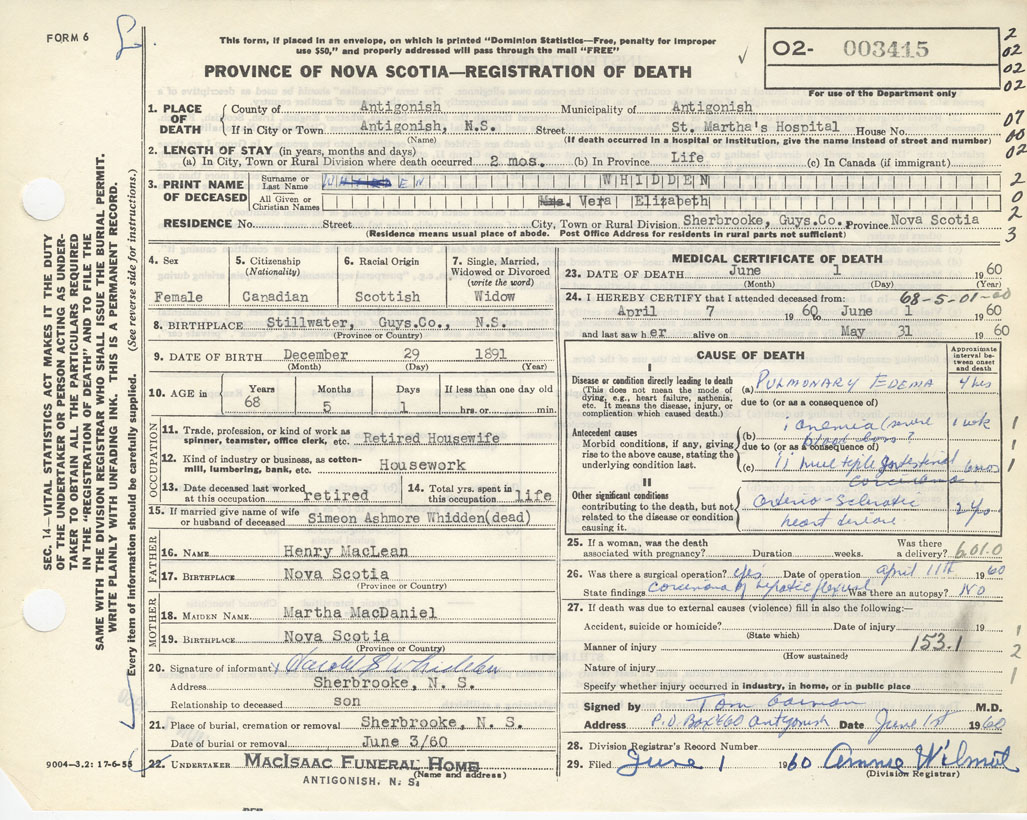 FORM 6
This form, if placed in an envelope, on which is printed "Dominion Statistics—Free, penalty for improper
use $50," and properly addressed will pass through the mail "FREE"
PROVINCE OF NOVA SCOTIA—REGISTRATION OF DEATH
02- 003415
For use of the Department only
2
02
02
02
07
60
02
2
0
2
3
1. PLACE OF DEATH
County of Antigonish Municipality of Antigonish
If in City or Town Antigonish, N.S. Street St. Martha's Hospital House No.
(Name) (If death occurred in a hospital or institution, give the name instead of street and number)
2. LENGTH OF STAY (in years, months and days)
(a) In City, Town or Rural Division where death occurred 2 mos. (b) In Province Life (c) In Canada (if immigrant)
3. PRINT NAME OF DECEASED
Surname or Last Name WHIDDEN
All Given or Christian Names Mrs. Vera Elizabeth
RESIDENCE No. Street City, Town or Rural Division Sherbrooke, Guys.Co. Province Nova Scotia
(Residence means usual place of abode. Post Office Address for residents in rural parts not sufficient)
4. Sex
Female
5. Citizenship
(Nationality)
Canadian
6. Racial Origin
Scottish
7. Single, Married,
Widowed or Divorced
(write the word)
Widow
8. BIRTHPLACE Stillwater, Guys.Co., N.S.
(Province or Country)
9. DATE OF BIRTH December 29 1891
(Month) (Day) (Year)
10. AGE in
Years Months Days If less than one day old
68 5 1 hrs. or min.
OCCUPATION
11. Trade, profession, or kind of work as
spinner, teamster, office clerk, etc. Retired Housewife
12. Kind of industry or business, as cotton-
mill, lumbering, bank, etc. Housework
13. Date deceased last worked
at this occupation retired
14. Total yrs. spent in
this occupation life
15. If married give name of wife
or husband of deceased Simeon Ashmore Whidden(dead)
FATHER
16. NAME Henry MacLean
17. BIRTHPLACE Nova Scotia
(Province or Country)
MOTHER
18. MAIDEN NAME Martha MacDaniel
19. BIRTHPLACE Nova Scotia
(Province or Country)
20. Signature of informant x Harold S Whidden
Address Sherbrooke, N. S.
Relationship to deceased son
21. Place of burial, cremation or removal Sherbrooke, N. S.
Date of burial or removal June 3/60
22. UNDERTAKER MACISAAC FUNERAL HOME
(Name and address)
ANTIGONISH, N. S.
9004—3.2: 17-6-55
SEC. 14—VITAL STATISTICS ACT MAKES IT THE DUTY
OF THE UNDERTAKER OR PERSON ACTING AS UNDER-
TAKER TO OBTAIN ALL THE PARTICULARS REQUIRED
IN THE "REGISTRATION OF DEATH" AND TO FILE THE
SAME WITH THE DIVISION REGISTRAR WHO SHALL ISSUE THE BURIAL PERMIT.
WRITE PLAINLY WITH UNFADING INK. THIS IS A PERMANENT RECORD.
Every item of information should be carefully supplied. (See reverse side for instructions.)
MEDICAL CERTIFICATE OF DEATH
23. DATE OF DEATH June 1 1960
(Month) (Day) (Year)
24. I HEREBY CERTIFY that I attended deceased from: 68-5-01-60
April 7 1960 to June 1 1960
and last saw her alive on May 31 1960
CAUSE OF DEATH
Approximate
interval be-
tween onset
and death
I
Disease or condition directly leading to death
(This does not mean the mode of
dying, e.g., heart failure, asthenia,
etc. It means the disease, injury, or
complication which caused death.)
(a) PULMONARY EDEMA 4 hrs
due to (or as a consequence of)
Antecedent causes
Morbid conditions, if any, giving
rise to the above cause, stating the
underlying condition last.
(b) i anemia (severe 1 wk 1
blood loss?
due to (or as a consequence of)
(c) ii multiple intestinal 6mos 1
carcinoma
II
Other significant conditions
contributing to the death, but not
related to the disease or condition
causing it.
Arterio-sclerotic 2 yrs
heart disease
25. If a woman, was the death
associated with pregnancy? Duration weeks. Was there
a delivery? 601.0
26. Was there a surgical operation? yes Date of operation April 11th 1960
State findings carcinoma of hepatic flexure Was there an autopsy? NO
27. If death was due to external causes (violence) fill in also the following:—
Accident, suicide or homicide? Date of injury 19 1
(State which)
Manner of injury 153.1 2
(How sustained)
Nature of injury 1
Specify whether injury occurred in industry, in home, or in public place
Signed by Tom Gorman M.D.
Address P.O. Box 460 Antigonish Date June 1st 1960
28. Division Registrar's Record Number
29. Filed June 1 1960 Annie Wilmot
(Division Registrar)